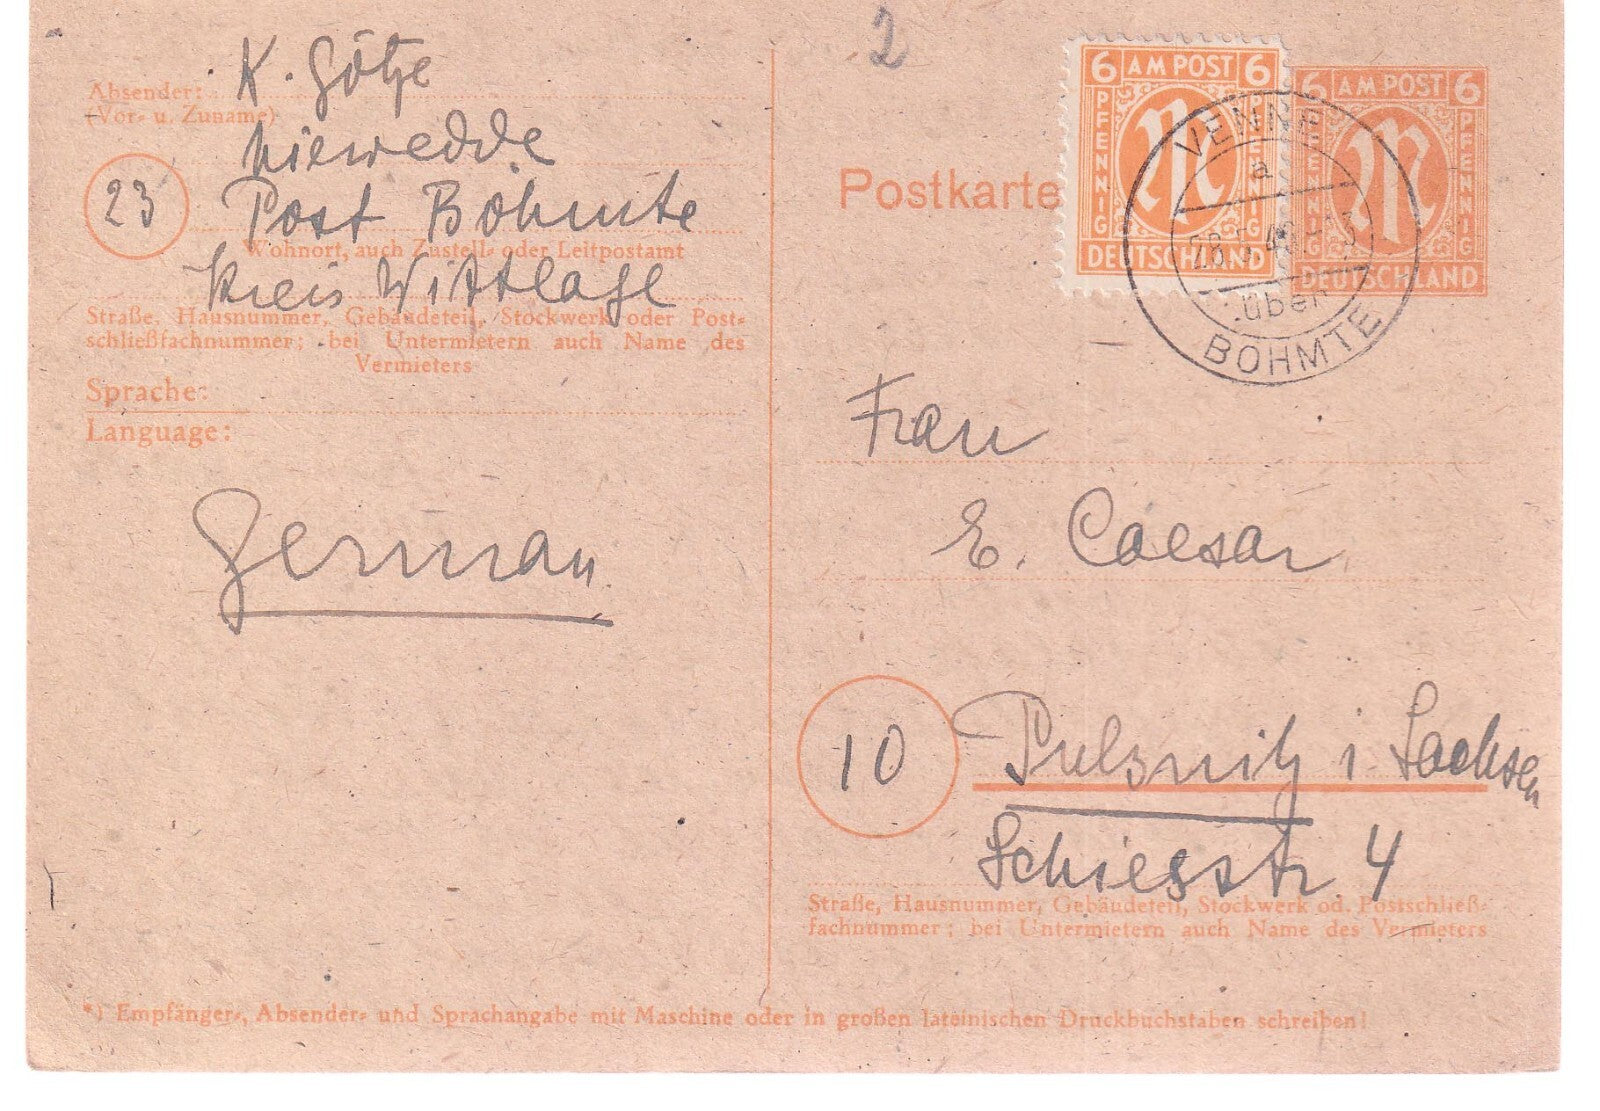 Absender:
(Vor- u. Zuname)
K. Götze
Niewedde
23
Post Bohmte
Wohnort, auch Zustell- oder Leitpostamt
Kreis Wittlage
Straße, Hausnummer, Gebäudeteil, Stockwerk oder Post-
schließfachnummer; bei Untermietern auch Name des
Vermieters
Sprache:
Language:
German
2
6 AM POST 6
PFENNIG
PFENNIG
DEUTSCHLAND
6 AM POST 6
PFENNIG
PFENNIG
DEUTSCHLAND
VENNE
a
über
BOHMTE
Postkarte
Frau
E. Caesar
10
Pulsnitz i. Sachsen
Schiesstr 4
Straße, Hausnummer, Gebäudeteil, Stockwerk od. Postschließ-
fachnummer; bei Untermietern auch Name des Vermieters
*) Empfänger-, Absender- und Sprachangabe mit Maschine oder in großen lateinischen Druckbuchstaben schreiben!